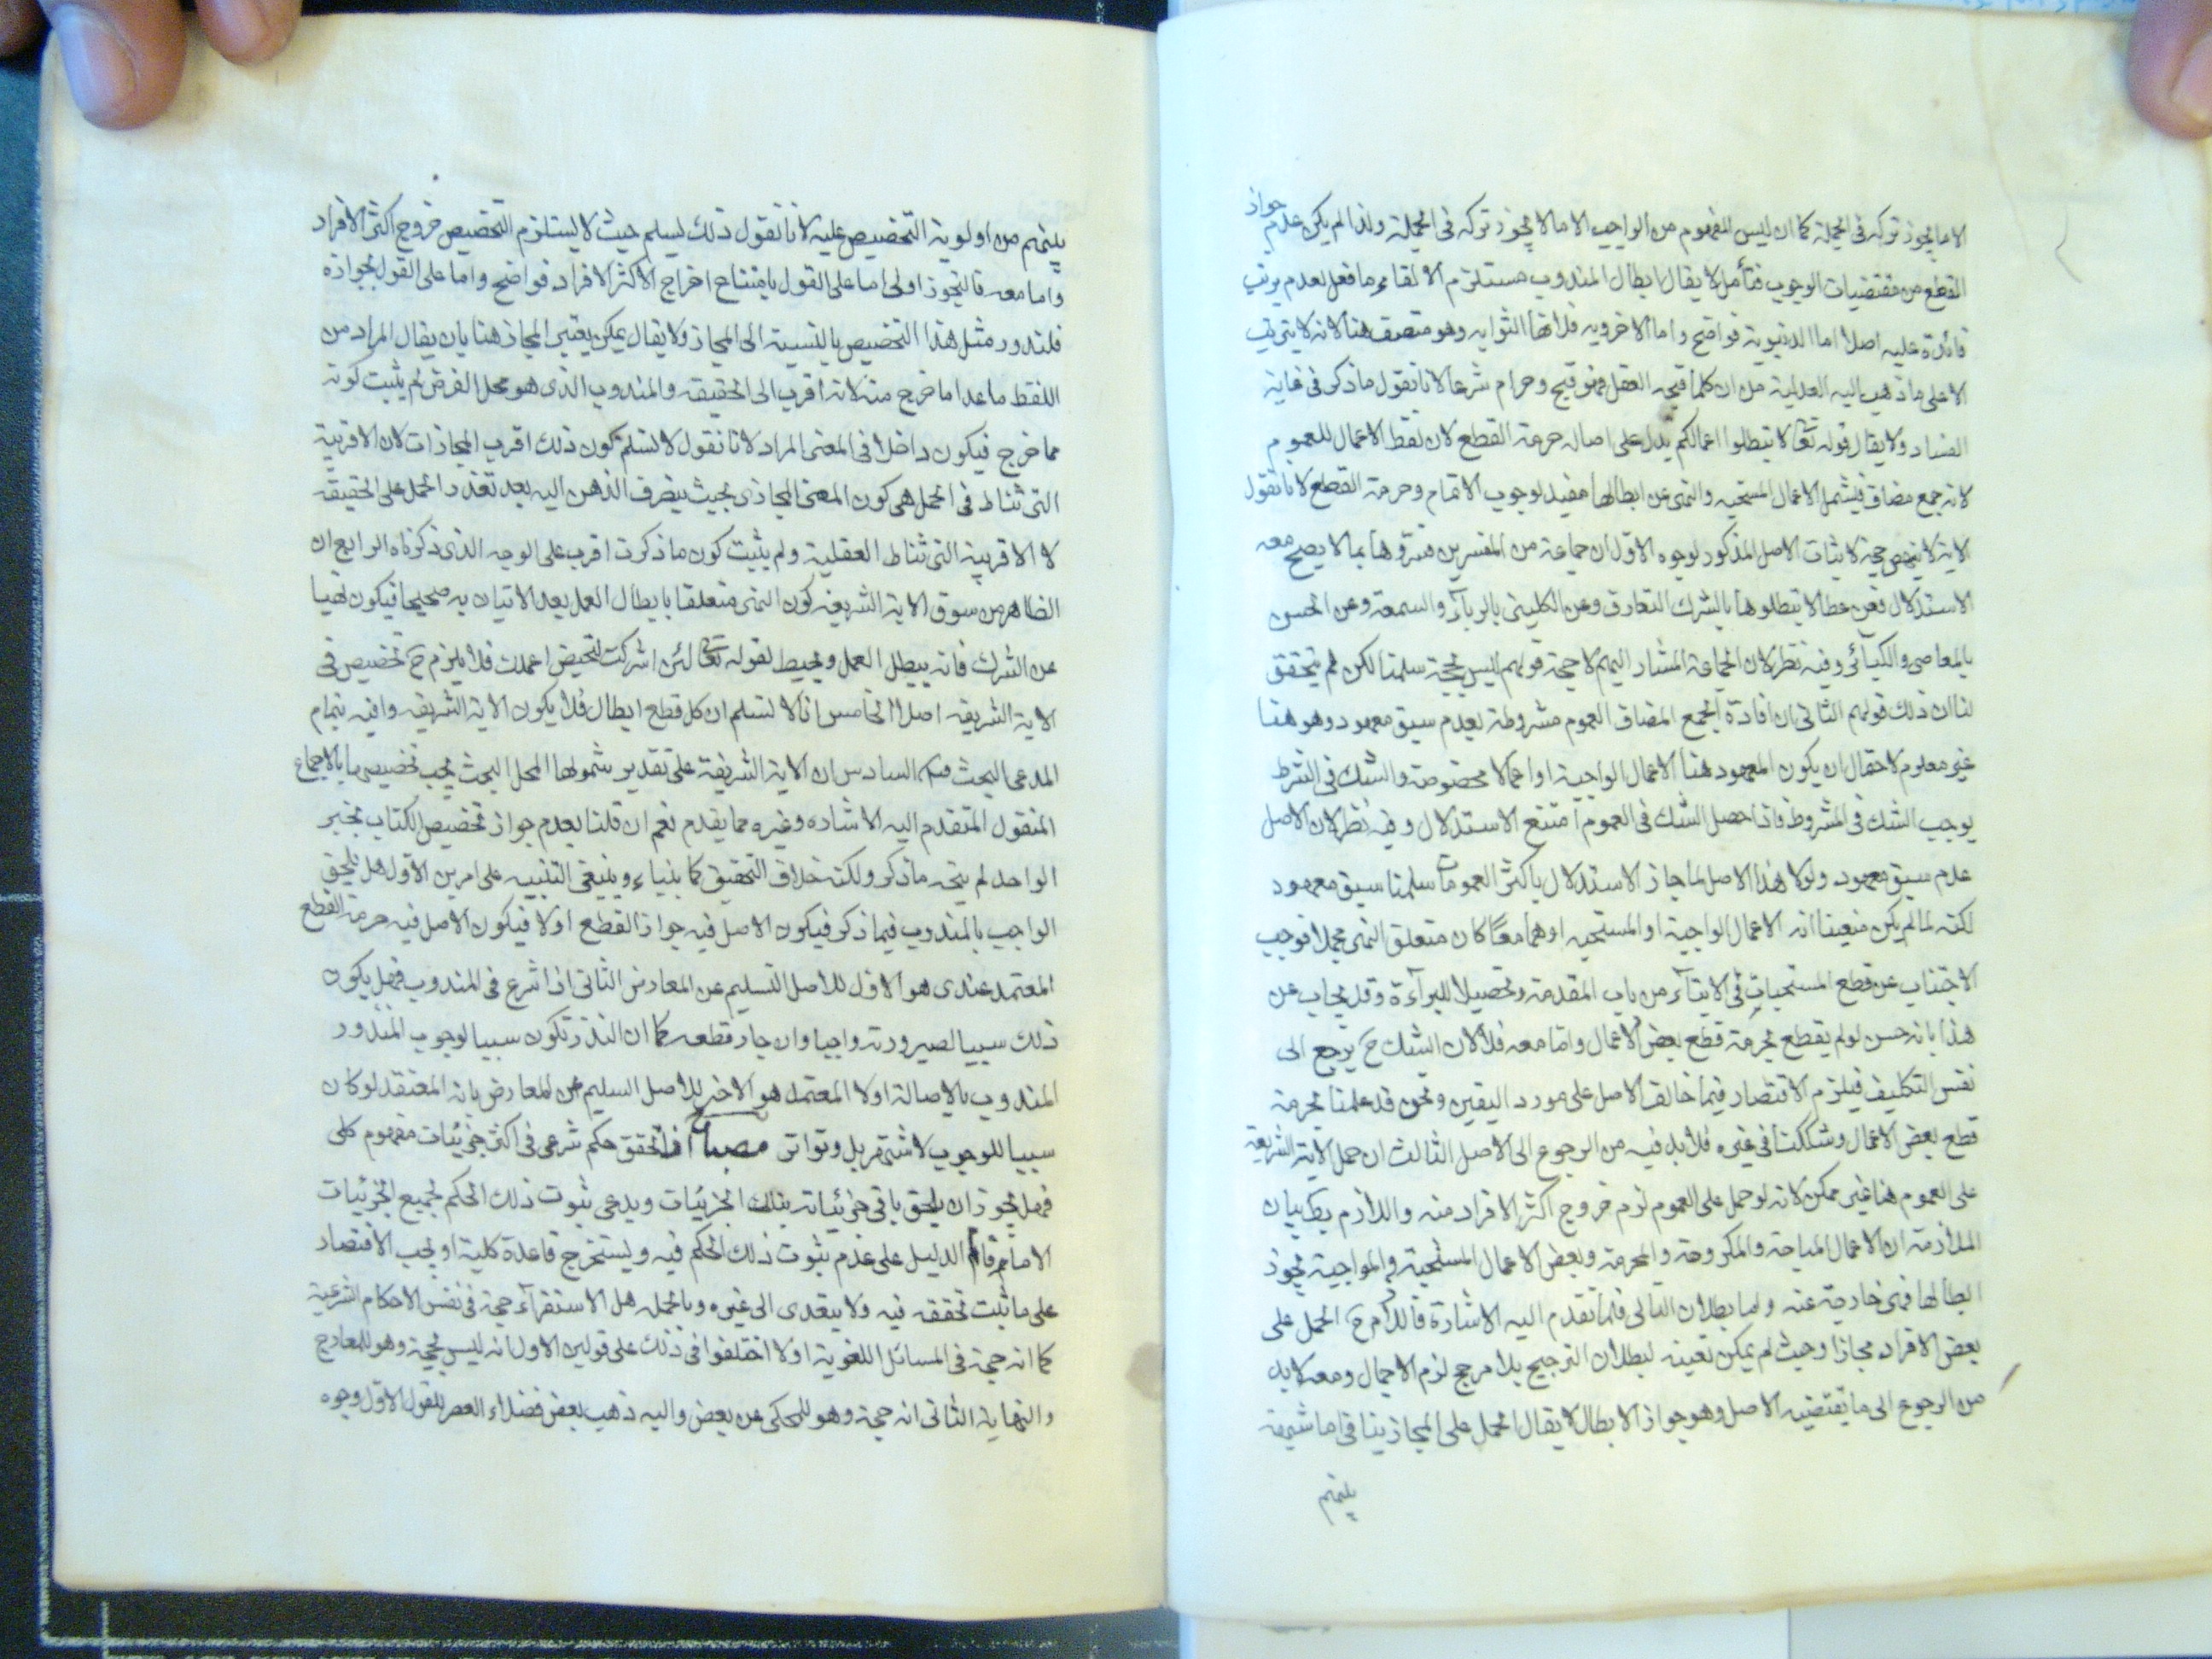 الا ما يجوز تركه فى الجملة كما ان ليس المفهوم من الواجب الا ما لا يجوز تركه فى الجملة ولذا لم يكن عدم جواز
القطع من مقتضيات الوجوب فتأمل لا يقال ابطال المندوب مستلزم الالقاء ما فعل لعدم ترتب
فائدة عليه اصلا اما الدنيوية فواضح واما الاخرويه فلانها الثوابه وهو منتف هنا لانه لا يترتب
الا على ما ذهب اليه العدلية من ان كلما قبحه العقل فهو قبيح وحرام شرعا لانا نقول ما ذكر فى غاية
الفساد ولا يقال قوله تعا لا تبطلوا اعمالكم يدل على اصاله حرمة القطع لان لفظ الاعمال للعموم
لانه جمع مضاف فيشمل الاعمال المستحبه والنهى عن ابطالها مفيد لوجوب الاتمام وحرمة القطع لانا نقول
الاية لا ينهض حجة لاثبات الاصل المذكور لوجوه الاول ان جماعة من المفسرين فسروها بما لا يصح معه
الاستدلال فعن عطا لا تبطلوها بالشرك التعارف وعن الكلبينى بالريآء والسمعة وعن الحسن
بالمعاصى والكبآئر وفيه نظر لان الجماعة المشار اليهم لا حجة قولهم ليس بحجة سلمنا لكن لم يتحقق
لنا ان ذلك قولهم الثانى ان افادة الجمع المضاف العموم مشروطة بعدم سبق معهود وهو هنا
غير معلوم لاحتمال ان يكون المعهود هنا الاعمال الواجبة او اعمالا مخصوصة والشك فى الشرط
يوجب الشك فى المشروط فاذا حصل الشك فى العموم امتنع الاستدلال وفيه نظر لان الاصل
عدم سبق معهود ولولا هذا الاصل لما جاز الاستدلال باكثر العمومات سلمنا سبق معهود
لكنه لما لم يكن متعينا انه الاعمال الواجبة او المستحبه او هما معًا كان متعلق النهى مجملا فوجب
الاجتناب عن قطع المستحبات فى الابتدآء من باب المقدمة وتحصيلا للبرآءة وقد يجاب عن
هذا بانه حسن لو لم يقطع بحرمة قطع بعض الاعمال واما معه فلا لان الشك ح يرجع الى
نفس التكليف فيلزم الاقتصار فيما خالف الاصل على مورد اليقين ونحن قد علمنا بحرمة
قطع بعض الاعمال وشككنا فى غيره فلا بد فيه من الرجوع الى الاصل الثالث ان حمل الاية الشريفة
على العموم هنا غير ممكن لانه لو حمل على العموم لزم خروج اكثر الافراد منه واللازم بط بيان
الملازمة ان الاعمال المباحة والمكروهة والمحرمة وبعض الاعمال المستحبة والواجبة يجوز
ابطالها فهى خارجة عنه واما بطلان التالى فلما تقدم اليه الاشارة فاللازم ح الحمل على
بعض الافراد مجازا وحيث لم يمكن تعيينه لبطلان الترجيح بلا مرجح لزم الاجمال ومعه لا بد
من الرجوع الى ما يقتضيه الاصل وهو جواز الابطال لا يقال الحمل على المجاز ينافى ما اشتهر
بينهم
بينهم من اولوية التخصيص عليه لانا نقول ذلك يسلم حيث لا يستلزم التخصيص خروج اكثر الافراد
واما معه فالتجوز اولى اما على القول بامتناع اخراج الاكثر الافراد فواضح واما على القول بجوازه
فلندور مثل هذا التخصيص بالنسبة الى المجاز ولا يقال يمكن تعيين المجاز هنا بان يقال المراد من
اللفظ ما عدا ما خرج منه لانه اقرب الى الحقيقة والمندوب الذى هو محل الفرض لم يثبت كونه
مما خرج فيكون داخلا فى المعنى المراد لانا نقول لا نسلم كون ذلك اقرب المجازات لان الاقربية
التى تناط فى الحمل هى كون المعنى المجازى بحيث ينصرف الذهن اليه بعد تعذر الحمل على الحقيقة
لا الاقربية التى تناط العقلية ولم يثبت كون ما ذكرت اقرب على الوجه الذى ذكرناه الرابع ان
الظاهر من سوق الاية الشريفه كون النهى متعلقا بابطال العمل بعد الاتيان به صحيحا فيكون نهيا
عن الشرك فانه يبطل العمل ويحبط لقوله تعا لئن اشركت ليحبطن اعملك فلا يلزم ح تخصيص فى
الاية الشريفه اصلا الخامس انا لا نسلم ان كل قطع ابطال فلا يكون الاية الشريفه وافيه بتمام
المدعى البحث السادس ان الاية الشريفة على تقدير شمولها المحل البحث يجب تخصيصها بالاجماع
المنقول المتقدم اليه الاشاره وغيره مما يقدم نعم ان قلنا بعدم جواز تخصيص الكتاب بخبر
الواحد لم يتجه ما ذكر ولكنه خلاف التحقيق كما بيناه وينبغى التنبيه على امرين الاول هل يلحق
الواجب بالمندوب فيما ذكر فيكون الاصل فيه جواز القطع او لا فيكون الاصل فيه حرمة القطع
المعتمد عندى هو الاول للاصل التسليم عن المعارض الثانى اذا شرع فى المندوب فهل يكون
ذلك سببا لصيرورته واجبا وان جاز قطعه كما ان النذر تكون سببا لوجوب المنذور
المندوب بالاصالة او لا المعتمد هو الاخير للاصل السليم عن المعارض بانه المعتقد لو كان
سببا للوجوب لاشتهر بل وتواتر مصباح اذا تحقق حكم شرعى فى اكثر جزئيات مفهوم كلى
فهل يجوز ان يلحق باقى جزئياته بتلك الجزئيات ويدعى ثبوت ذلك الحكم لجميع الجزئيات
الا ما قام الدليل على عدم ثبوت ذلك الحكم فيه ويستخرج قاعدة كلية او يجب الاقتصار
على ما ثبت تحققه فيه ولا يتعدى الى غيره وبالجمله هل الاستقرآء حجة فى نفس الاحكام الشرعية
كما انه حجة فى المسائل اللغوية او لا اختلفوا فى ذلك على قولين الاول انه ليس بحجة وهو للمعارج
والنهاية الثانى انه حجة وهو للمحكى عن بعض واليه ذهب بعض فضلاء العصر للقول الاول وجوه